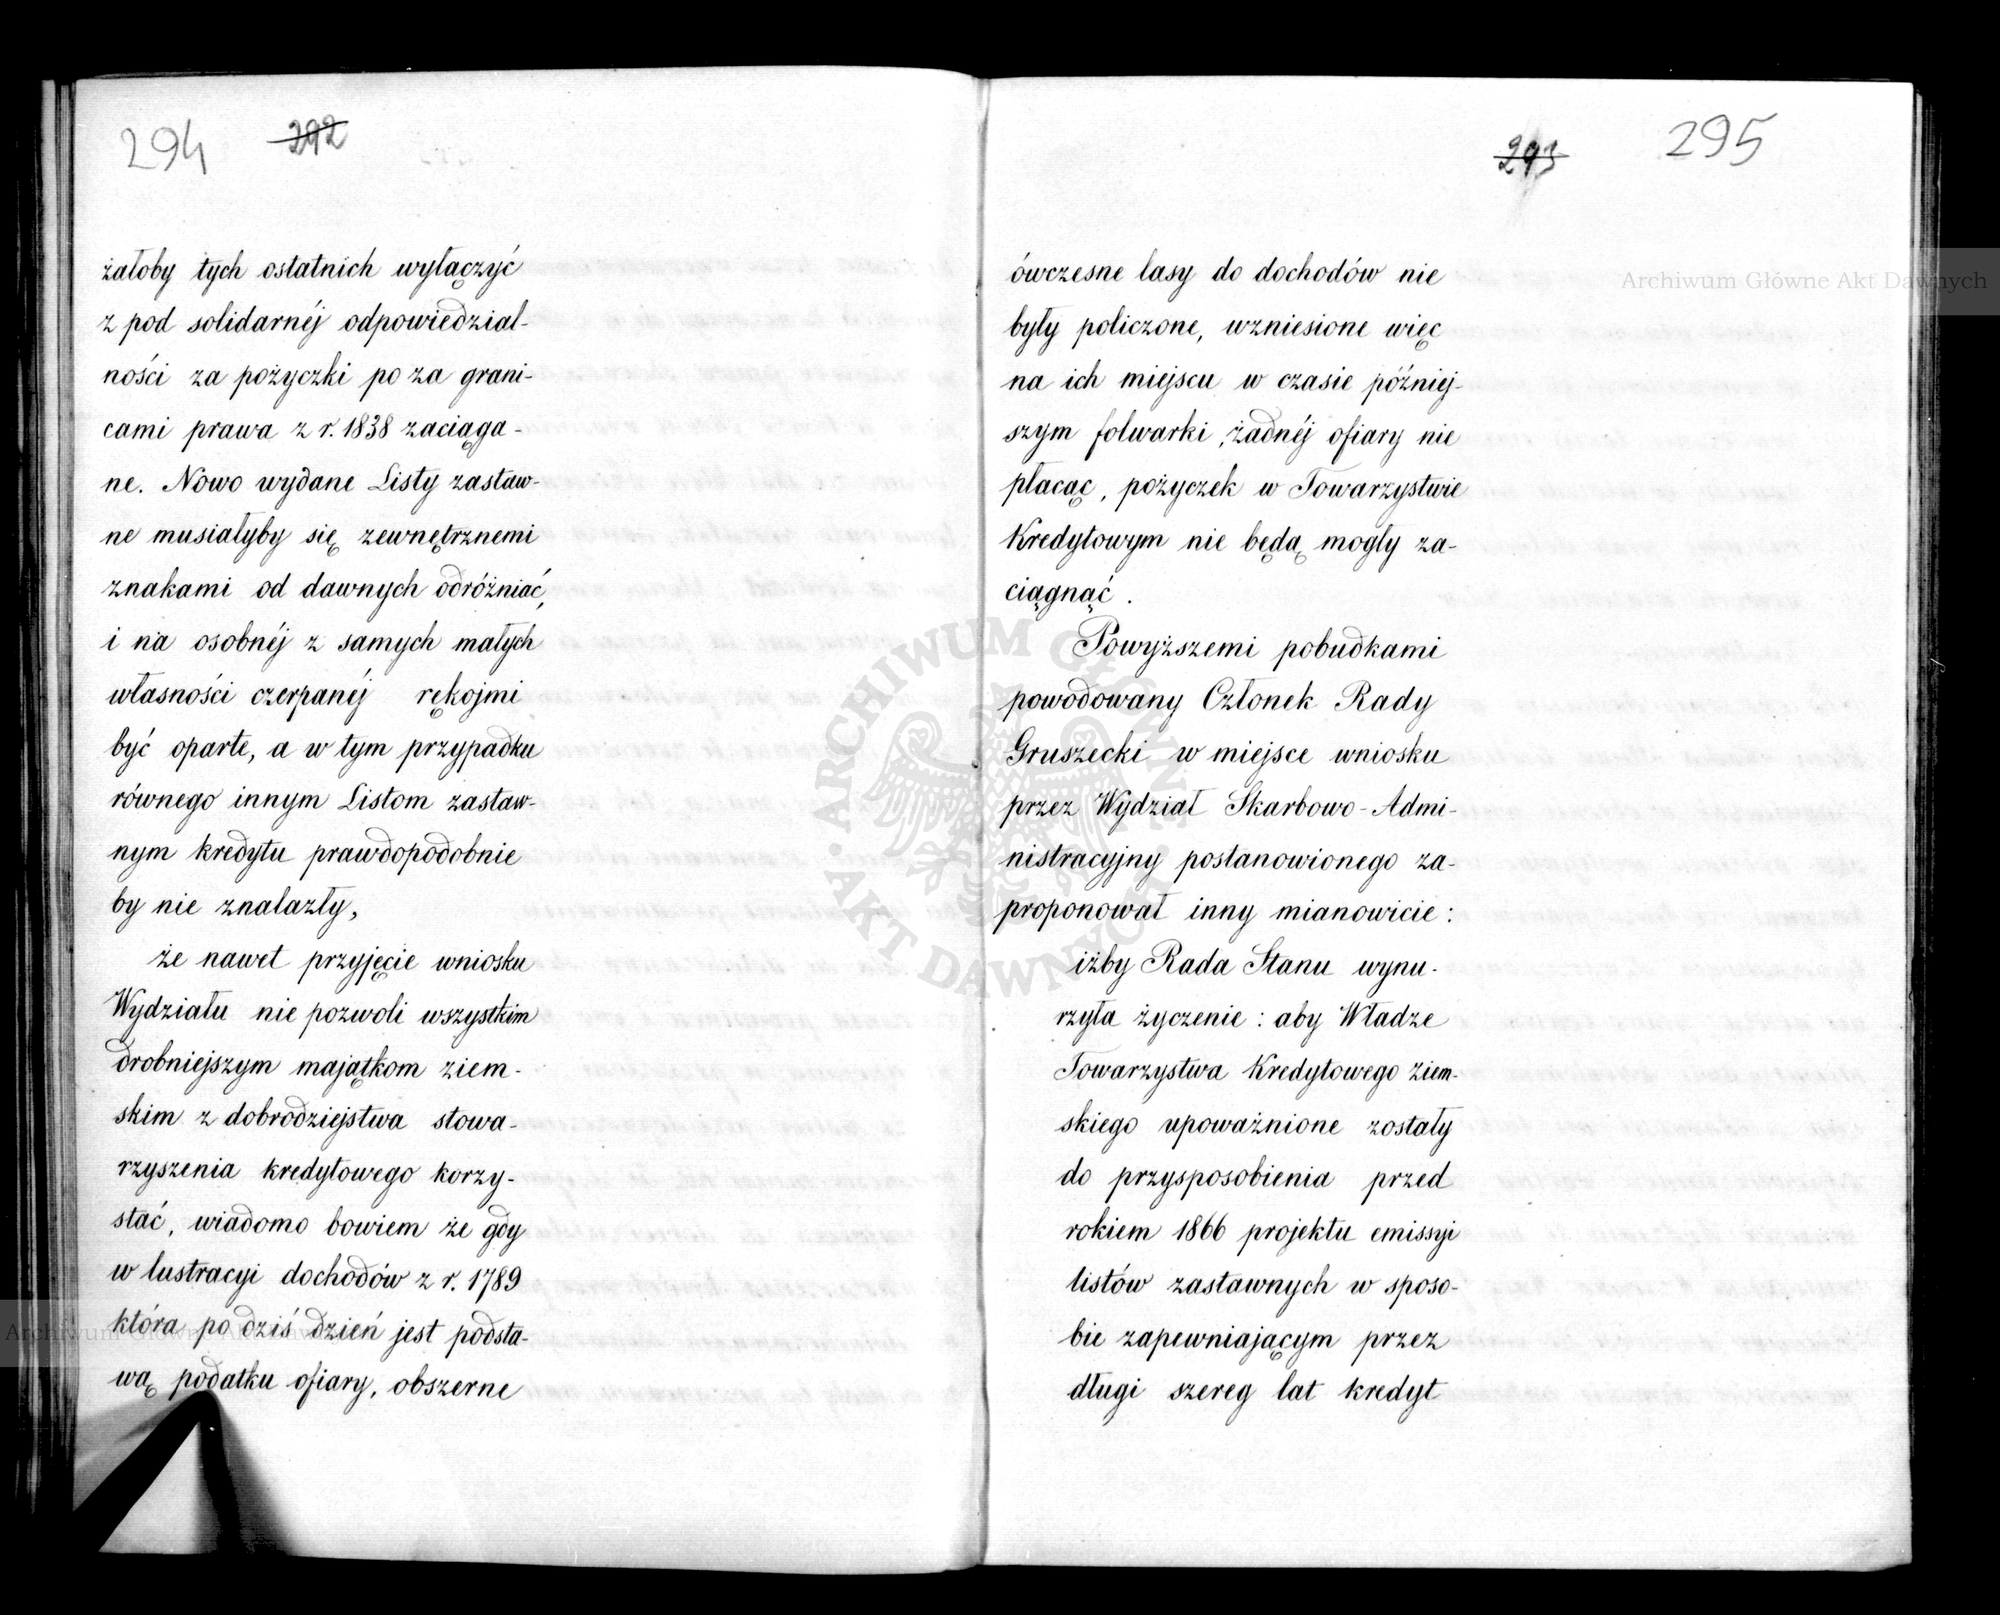 294 292
żałoby tych ostatnich wyłączyć
z pod solidarnéj odpowiedzial-
ności za pożyczki po za grani-
cami prawa z r. 1838 zaciąga-
ne. Nowo wydane Listy zastaw-
ne musiałyby się zewnętrznemi
znakami od dawnych odróżniać,
i na osobnéj z samych małych
własności czerpanéj rękojmi
być oparte, a w tym przypadku
równego innym Listom zastaw-
nym kredytu prawdopodobnie
by nie znalazły,
że nawet przyjęcie wniosku
Wydziału nie pozwoli wszystkim
drobniejszym majątkom ziem-
skim z dobrodziejstwa stowa-
rzyszenia kredytowego korzy-
stać, wiadomo bowiem że gdy
w lustracyi dochodów z r. 1789
która po dziś dzień jest podsta-
wą podatku ofiary, obszerne
293 295
ówczesne lasy do dochodów nie
były policzone, wzniesione więc
na ich miejscu w czasie później-
szym folwarki, żadnéj ofiary nie
płacąc, pożyczek w Towarzystwie
Kredytowym nie będą mogły za-
ciągnąć.
Powyższemi pobudkami
powodowany Członek Rady
Gruszecki w miejsce wniosku
przez Wydział Skarbowo-Admi-
nistracyjny postanowionego za-
proponował inny mianowicie:
iżby Rada Stanu wynu-
rzyła życzenie: aby Władze
Towarzystwa Kredytowego Ziem-
skiego upoważnione zostały
do przysposobienia przed
rokiem 1866 projektu emissyi
listów zastawnych w sposo-
bie zapewniającym przez
długi szereg lat kredyt
Archiwum Główne Akt Dawnych
ARCHIWUM GŁÓWNE AKT DAWNYCH